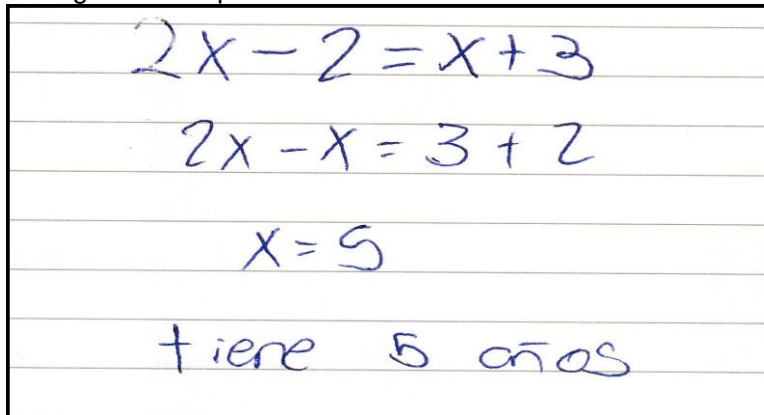 2x - 2 = x + 3
2x - x = 3 + 2
x = 5
tiene 5 años